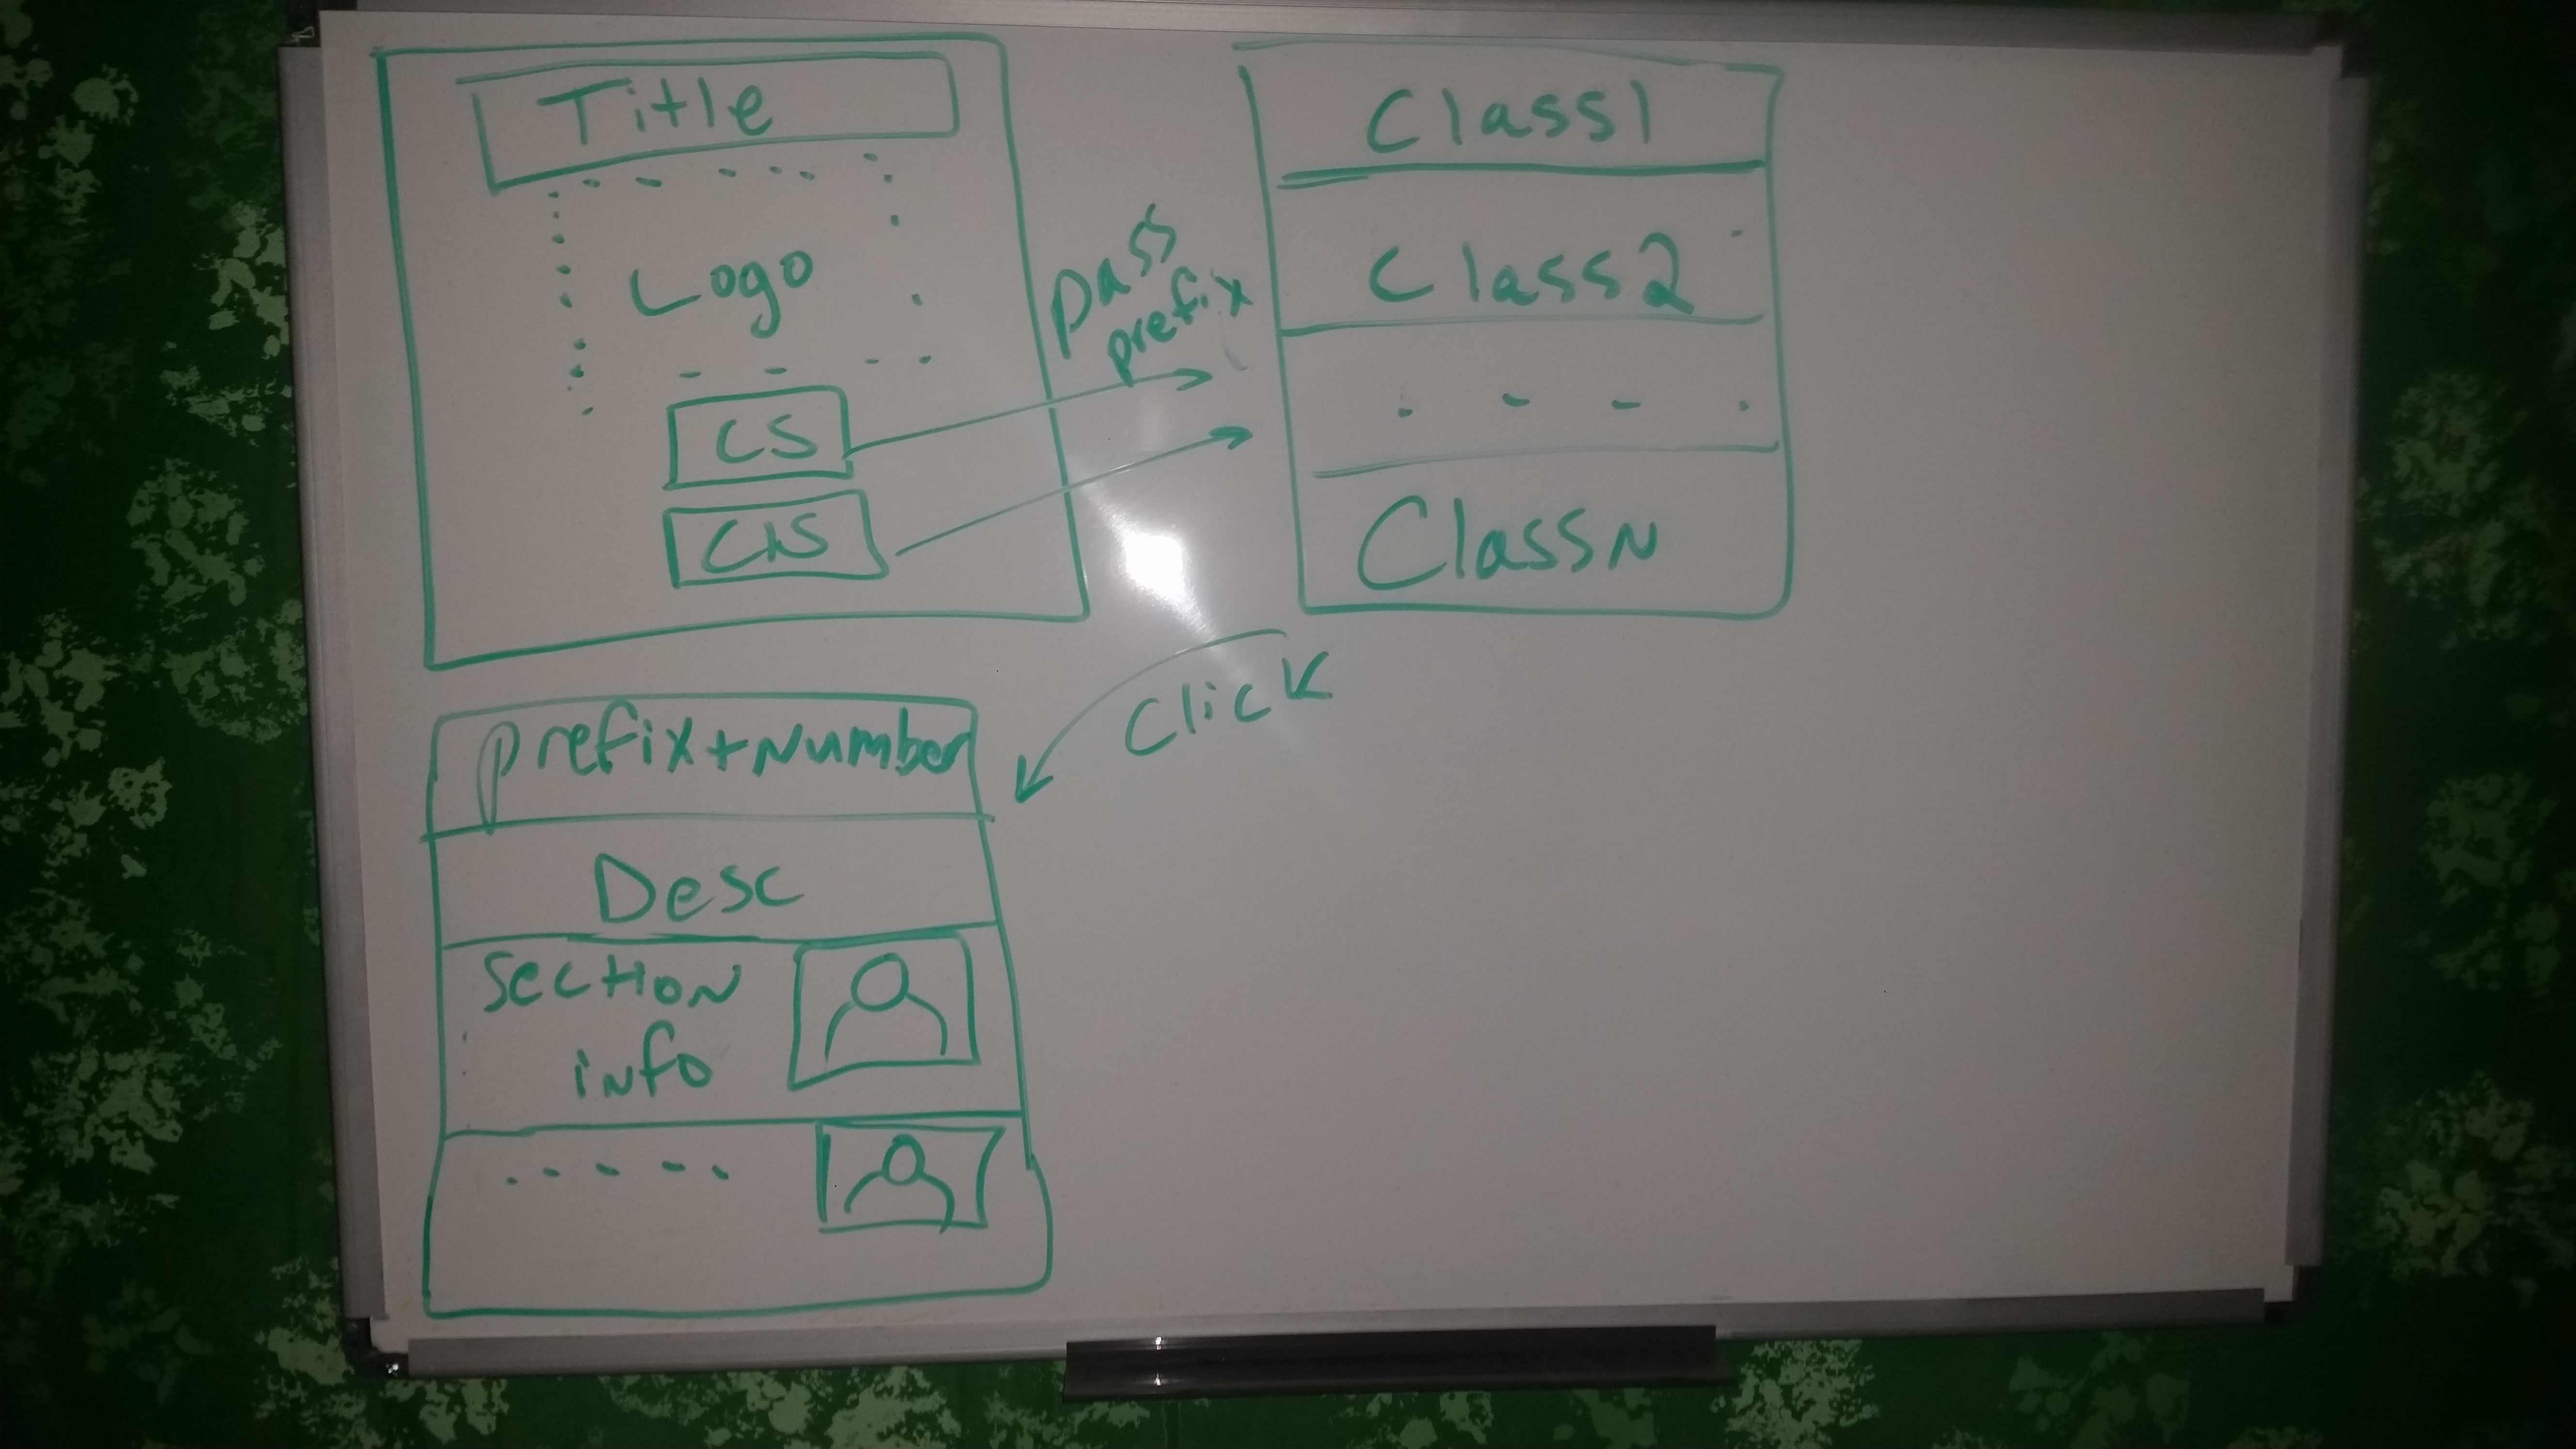 Title
Logo
CS
CIS
pass
prefix
Class1
Class2
ClassN
Click
prefix+Number
Desc
Section
info